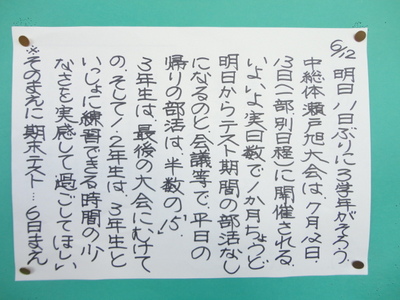 6/12 明日11日ぶりに3学年がそろう。
中総体瀬戸旭大会は、7月12日、
13日(一部、別日程)に開催される。
いよいよ実日数で1か月ちょうど。
明日からテスト期間の部活なし
になるのと、会議等で、平日の
帰りの部活は、半数の"15"。
3年生は、最後の大会にむけて
の、そして!、2年生は、3年生と
いっしょに練習できる時間の少
なさを実感して過ごしてほしい
※そのまえに期末テスト…6日まえ